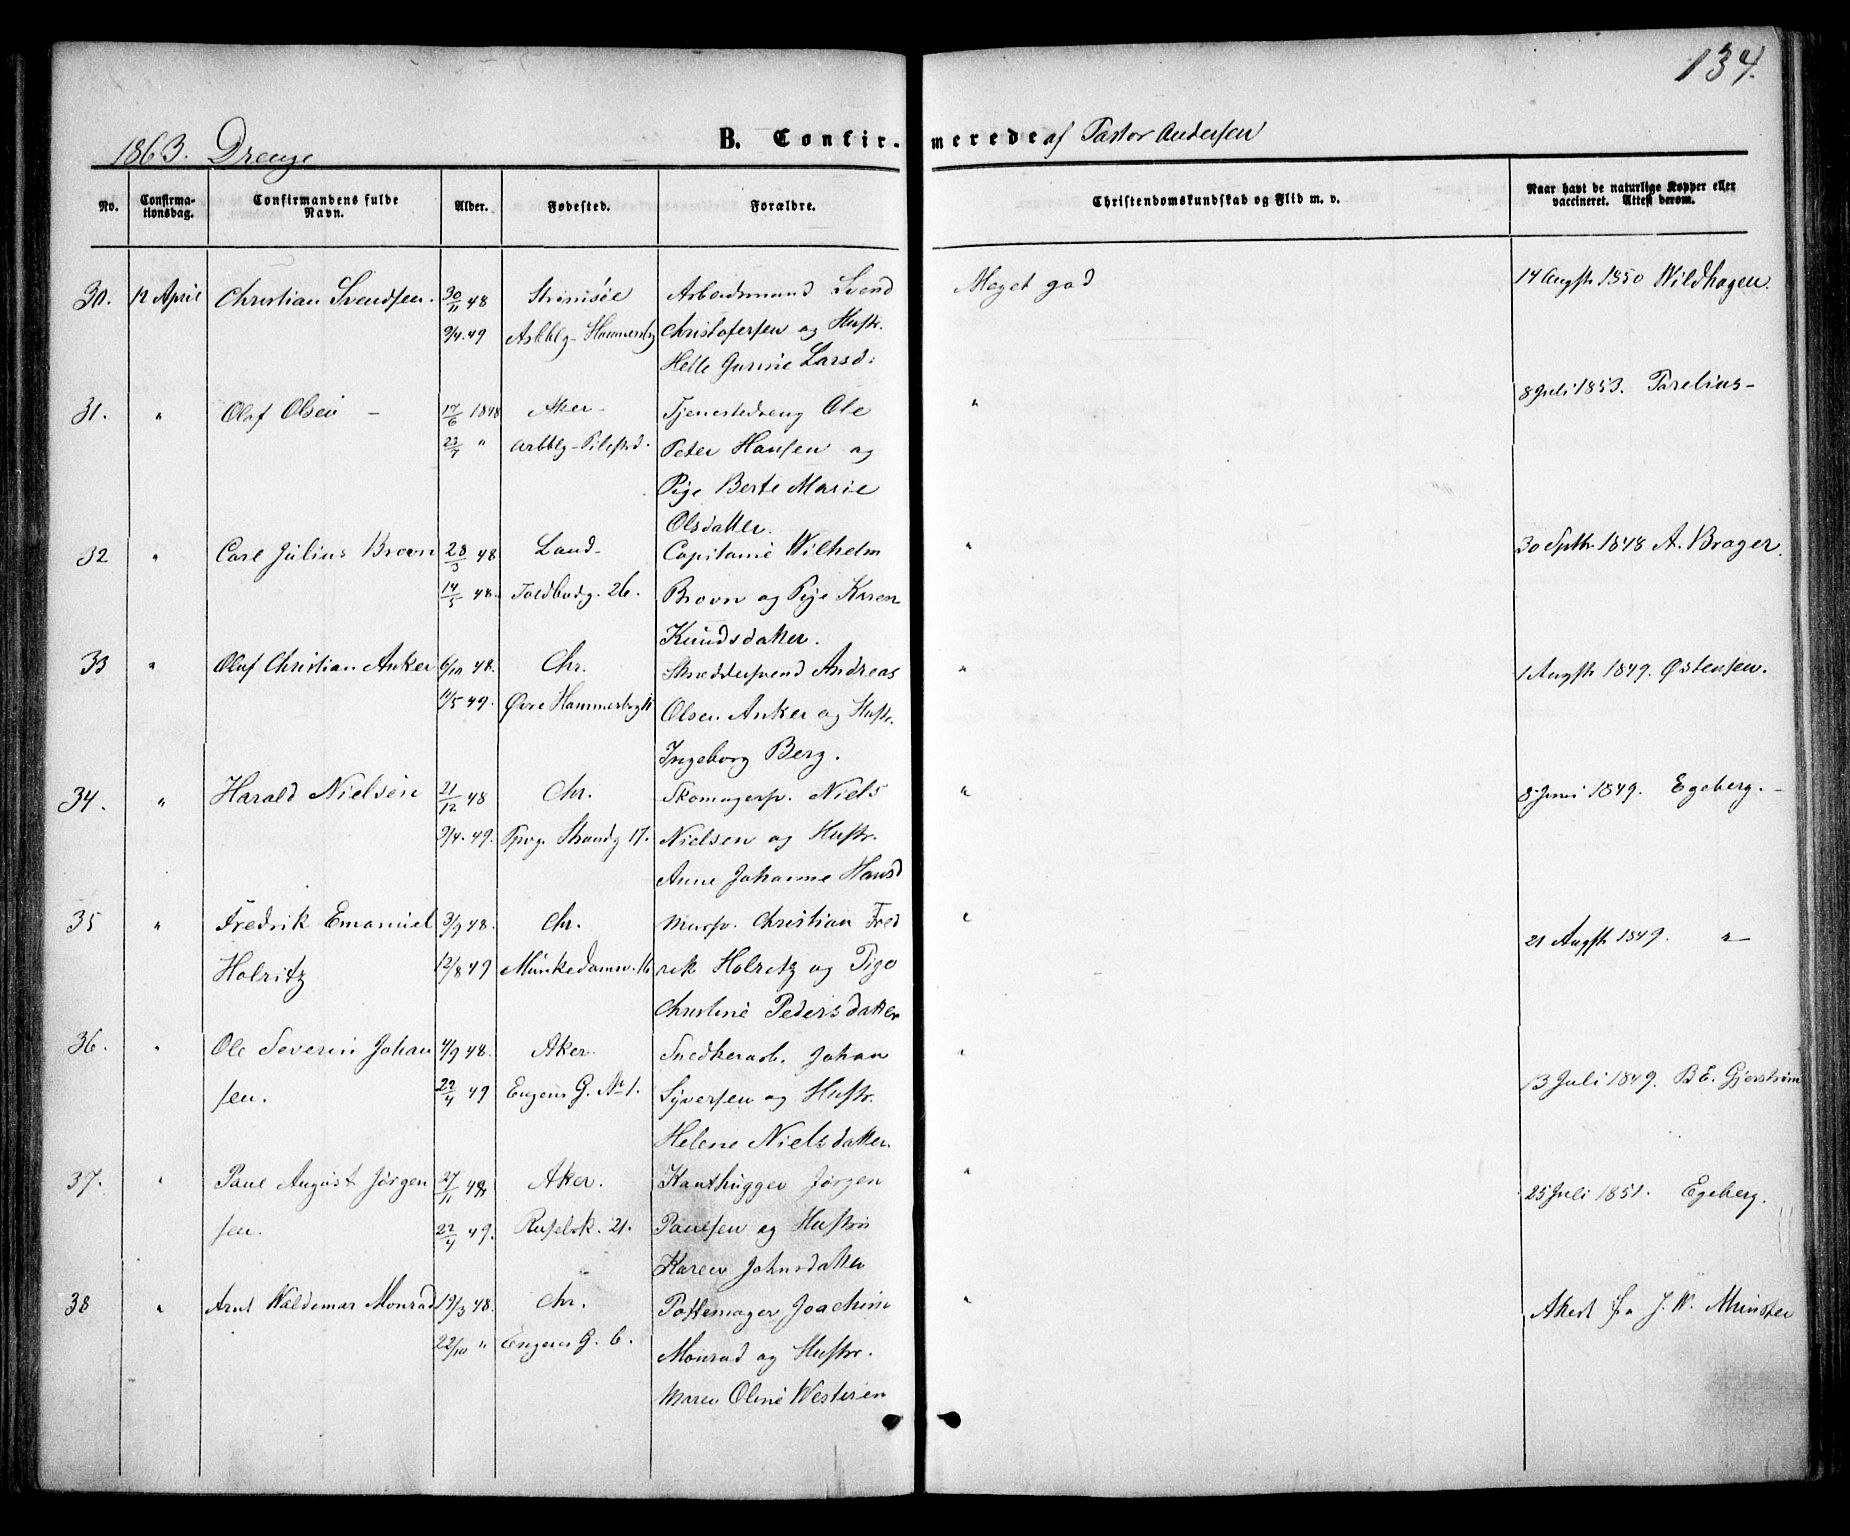 134.
1863. Drenge
B. Confir- merede af Pastor Andersen
No. Confirmationsdag. Confirmandens fulde Navn. Alder. Fødested. Forældre. Christendomskundskab og Flid m. v. Naar havt de naturlige Kopper eller vaccineret. Attest derom.
30. 12 April Christian Svendsen. 30/11 48 Strømsøe Arbeidsmand Svend Meget god 14 Augst 1850 Wildhagen.
9/4. 49 Hammersbg Christofersen og Hustr.
Helle Gurine Larsd:
31. " Olaf Olsen - 17/6 1848 Aker- Tjenestedreng Ole " 8 Juli 1853. Parelius-
23/7 " Arbblg-Pilestrd. Peter Hansen og
Pige Berte Marie
Olsdatter.
32 " Carl Julius Brovn 28/3 48 Land- Capitaine Wilhelm " 30 Septbr 1848 A. Brager.
14/5 48. Toldbodg. 26. Brovn og Pige Karen
Knudsdatter.
33 " Olaf Christian Anker 6/10 48. Chr. Skræddersvend Andreas " 1 Augst 1849. Østensen.
49. Øvre Hammersbg Olsen Anker og Hustr.
Ingeborg Berg.
34. " Harald Nielsen 21/12 48 Chr. Skomagersv. Niels " 8 Juni 1849. Egeberg. -
9/4. 49. Strandg 17. Nielsen og Hustr.
Anne Johanne Hansd
35 " Fredrik Emanuel 3/9 48. Chr. Mursv. Christian Fred " 21 Augst 1849. "
Holritz 12/8 49 Munkedamsv. 16 rik Holritz og Pige
Christine Pedersdatter
36. " Ole Severin Johan 4/9 48. Aker. Snedkerarb. Johan " 13 Juli 1849. B E. Gjerstrøm
sen. 22/4 49 Engens G. No 1. Syversen og Hustr.
Helene Nielsdatter.
37. " Paul August Jørgen 27/11 48 Aker. Kanthugger Jørgen " 25 Juli 1851. Egeberg.
sen. 22/4 49. Ruselsk. 21. Paulsen og Hustru
Karen Johnsdatter
38 " Arnt Waldemar Monrad 19/3 48. Chr. Pottemager Joachim " Attest fra J. W. Münster
22/10 " Engens G. 6. Monrad og Hustr.
Maren Oline Westeren